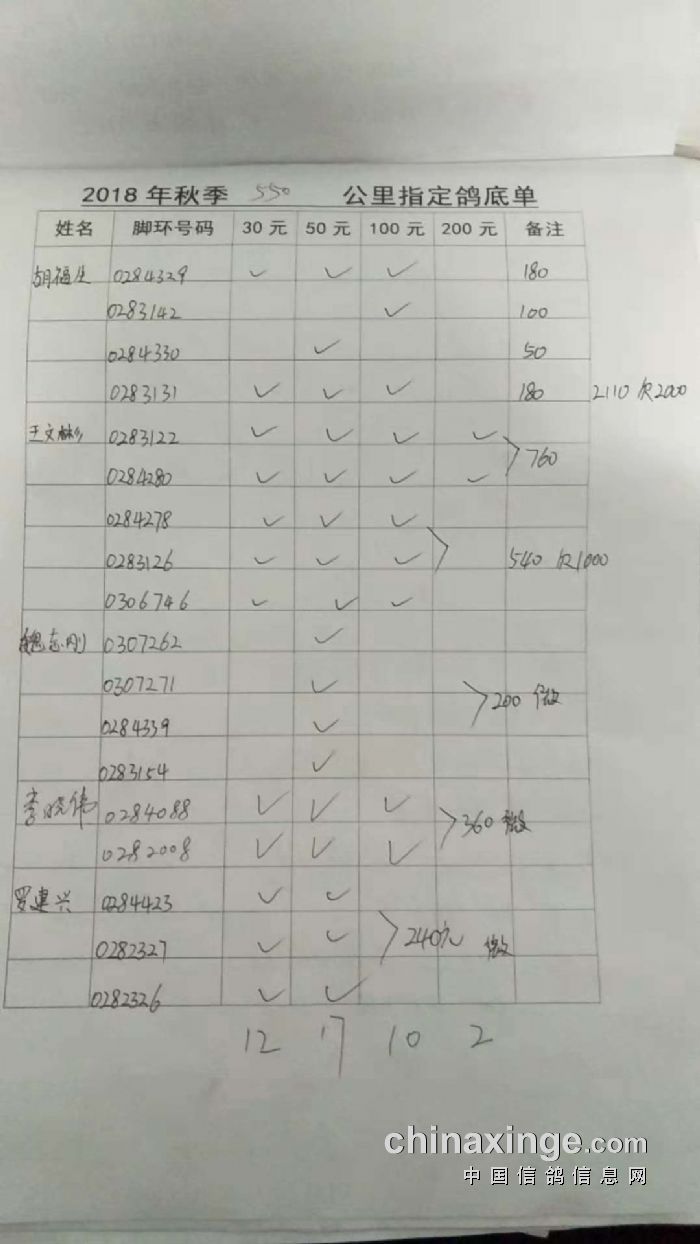 2018 年秋季 550 公里指定鸽底单
姓名 脚环号码 30 元 50 元 100 元 200 元 备注
胡福生 0284329 ✓ ✓ ✓ 180
0283142 ✓ 100
0284330 ✓ 50
0283131 ✓ ✓ ✓ 180 2110 欠2000
王文彬 0283122 ✓ ✓ ✓ ✓
0284280 ✓ ✓ ✓ ✓ 760
0284278 ✓ ✓ ✓
0283126 ✓ ✓ ✓ 540 欠1000
0306746 ✓ ✓ ✓
魏志刚 0307262 ✓
0307271 ✓ 200 微
0284339 ✓
0283154 ✓
李晓伟 0284088 ✓ ✓ ✓
0282008 ✓ ✓ ✓ 360 微
罗建兴 0284423 ✓ ✓
0282327 ✓ ✓ 240元 微
0282326 ✓ ✓
12 17 10 2
chinaxinge.com
中国信鸽信息网